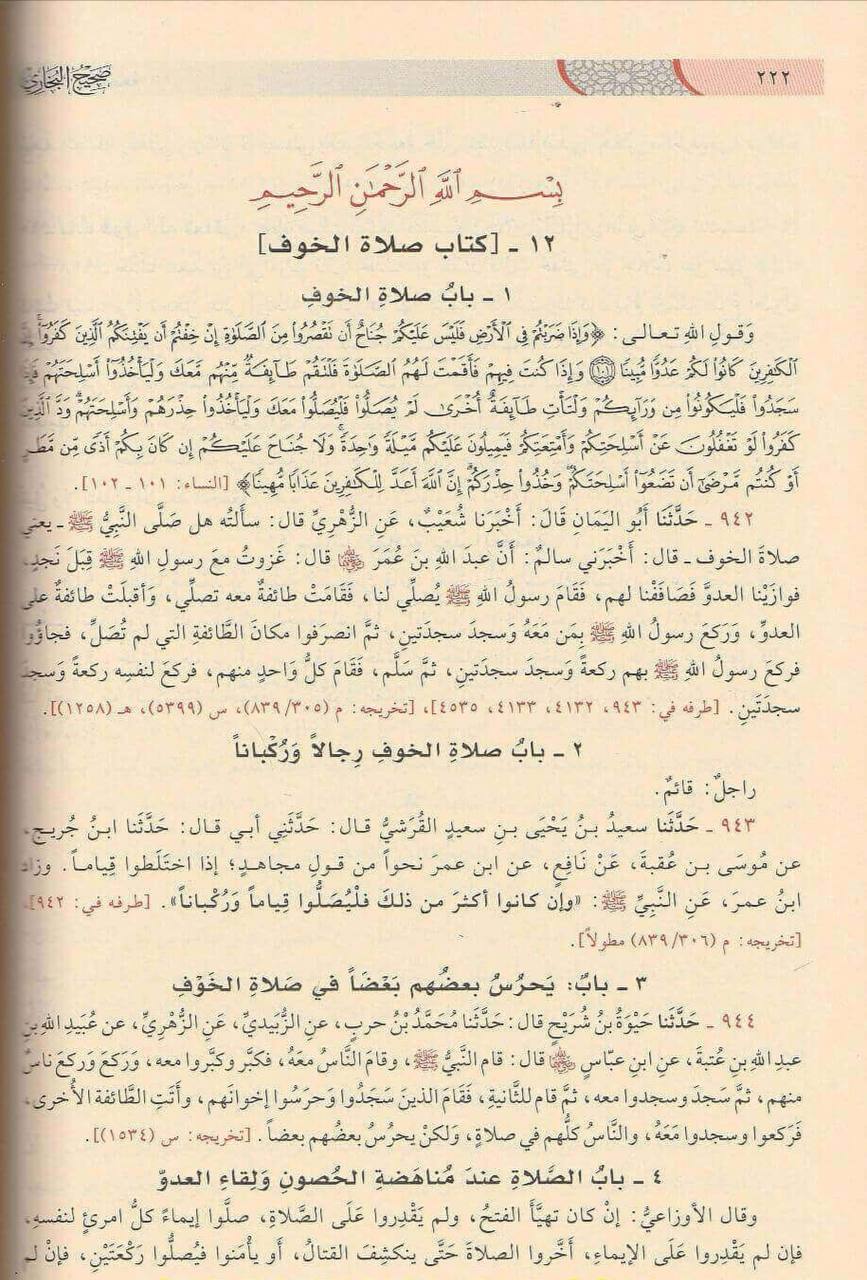 ٢٢٢ صحيح البخاري
بِسْمِ اللَّهِ الرَّحْمَٰنِ الرَّحِيمِ
١٢ ـ [كتاب صلاة الخوف]
١ ـ بابُ صلاةِ الخوفِ
وَقولِ اللهِ تعالى: ﴿وَإِذَا ضَرَبْتُمْ فِي ٱلْأَرْضِ فَلَيْسَ عَلَيْكُمْ جُنَاحٌ أَن تَقْصُرُوا۟ مِنَ ٱلصَّلَوٰةِ إِنْ خِفْتُمْ أَن يَفْتِنَكُمُ ٱلَّذِينَ كَفَرُوٓا۟
ٱلْكَٰفِرِينَ كَانُوا۟ لَكُمْ عَدُوًّا مُّبِينًا ١٠١ وَإِذَا كُنتَ فِيهِمْ فَأَقَمْتَ لَهُمُ ٱلصَّلَوٰةَ فَلْتَقُمْ طَآئِفَةٌ مِّنْهُم مَّعَكَ وَلْيَأْخُذُوٓا۟ أَسْلِحَتَهُمْ
سَجَدُوا۟ فَلْيَكُونُوا۟ مِن وَرَآئِكُمْ وَلْتَأْتِ طَآئِفَةٌ أُخْرَىٰ لَمْ يُصَلُّوا۟ فَلْيُصَلُّوا۟ مَعَكَ وَلْيَأْخُذُوا۟ حِذْرَهُمْ وَأَسْلِحَتَهُمْ وَدَّ ٱلَّذِينَ
كَفَرُوا۟ لَوْ تَغْفُلُونَ عَنْ أَسْلِحَتِكُمْ وَأَمْتِعَتِكُمْ فَيَمِيلُونَ عَلَيْكُم مَّيْلَةً وَٰحِدَةً وَلَا جُنَاحَ عَلَيْكُمْ إِن كَانَ بِكُمْ أَذًى مِّن مَّطَرٍ
أَوْ كُنتُم مَّرْضَىٰٓ أَن تَضَعُوٓا۟ أَسْلِحَتَكُمْ وَخُذُوا۟ حِذْرَكُمْ إِنَّ ٱللَّهَ أَعَدَّ لِلْكَٰفِرِينَ عَذَابًا مُّهِينًا﴾ [النساء: ١٠١ ـ ١٠٢].
٩٤٢ ـ حَدَّثَنَا أَبُو اليَمَانِ قَالَ: أَخْبَرَنا شُعَيْبٌ، عَنِ الزُّهْرِيِّ قال: سألتُه هل صَلَّى النَّبِيُّ ﷺ ـ يعني
صلاةَ الخوف ـ قال: أَخْبَرَني سالمٌ: أَنَّ عبدَ اللهِ بنَ عُمَرَ رضي الله عنهما قال: غَزوتُ معَ رسولِ اللهِ ﷺ قِبَلَ نَجدٍ،
فوازَيْنا العدوَّ فَصَافَفْنا لهم، فَقَامَ رسولُ اللهِ ﷺ يُصلِّي لنا، فَقَامَتْ طائفةٌ معه تصلِّي، وَأَقبلَتْ طائفةٌ على
العدوِّ، وَرَكعَ رسولُ اللهِ ﷺ بِمَن مَعَهُ وَسجدَ سجدَتينِ، ثمَّ انصرَفوا مكانَ الطَّائفةِ التي لم تُصَلِّ، فجاؤُوا
فركعَ رسولُ اللهِ ﷺ بهم ركعةً وَسجدَ سجدَتَينِ، ثمَّ سَلَّم، فَقَامَ كلُّ وَاحدٍ منهم، فركعَ لنفسِه ركعةً وَسجدَ
سجدَتَينِ. [طرفه في: ٩٤٣، ٤١٣٢، ٤١٣٣، ٤٥٣٥]، [تخريجه: م (٨٣٩/٣٠٥)، س (٥٣٩٩)، هـ (١٢٥٨)].
٢ ـ بابُ صلاةِ الخوفِ رِجالاً وَرُكْباناً
راجلٌ: قائمٌ.
٩٤٣ ـ حَدَّثَنا سعيدُ بنُ يَحْيَى بنِ سعيدٍ القُرَشيُّ قال: حَدَّثَنِي أبي قال: حَدَّثَنا ابنُ جُريجٍ،
عن مُوسَى بنِ عُقبةَ، عَنْ نَافِعٍ، عن ابنِ عمرَ نحواً من قولِ مجاهدٍ؛ إذا اختَلَطوا قِياماً. وزادَ
ابنُ عمرَ، عَنِ النَّبِيِّ ﷺ: «وإن كانوا أكثرَ من ذلكَ فلْيُصَلُّوا قِياماً وَرُكْباناً». [طرفه في: ٩٤٢]،
[تخريجه: م (٨٣٩/٣٠٦) مطولاً].
٣ ـ بابٌ: يَحرُسُ بعضُهم بَعْضَاً في صَلاةِ الخَوْفِ
٩٤٤ ـ حَدَّثَنا حَيْوَةُ بنُ شُرَيْحٍ قال: حَدَّثَنا مُحَمَّدُ بْنُ حربٍ، عنِ الزُّبَيديِّ، عَنِ الزُّهْرِيِّ، عن عُبَيدِ اللهِ بنِ
عبدِ اللهِ بنِ عُتبةَ، عَنِ ابنِ عبَّاسٍ رضي الله عنهما قالَ: قام النَّبيُّ ﷺ، وقامَ النَّاسُ معَهُ، فكبَّر وكبَّروا معه، وَركعَ وَركعَ ناسٌ
منهم، ثمَّ سَجدَ وسجدوا معه، ثمَّ قام للثَّانيةِ، فَقَامَ الذينَ سَجَدُوا وَحرَسُوا إخوانَهم، وأَتَتِ الطَّائفةُ الأُخرى،
فَرَكعوا وسجدوا مَعَهُ، والنَّاسُ كلُّهم في صلاةٍ، وَلكنْ يحرُسُ بعضُهم بعضاً. [تخريجه: س (١٥٣٤)].
٤ ـ بابُ الصَّلاةِ عندَ مُناهَضةِ الحُصونِ وَلِقاءِ العدوِّ
وقال الأوزاعيُّ: إنْ كان تهيَّأَ الفتحُ، ولم يَقْدِروا عَلَى الصَّلاةِ، صلَّوا إيماءً كلُّ امرئٍ لنفسهِ،
فإن لم يَقْدِروا عَلَى الإيماءِ، أَخَّروا الصلاةَ حَتَّى ينكشِفَ القتالُ، أَو يأْمَنوا فيُصلُّوا رَكْعَتَيْنِ، فإنْ لم